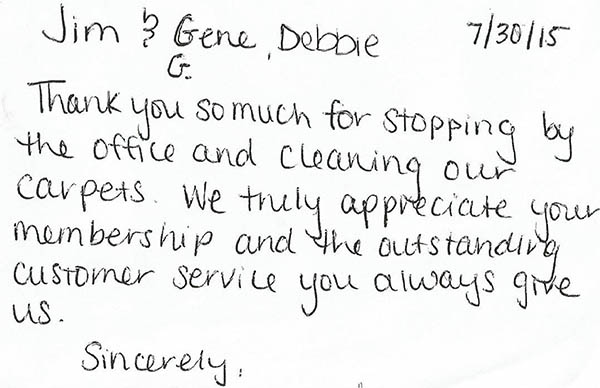 Jim & Gene, Debbie 7/30/15
G.
Thank you so much for stopping by
the office and cleaning our
carpets. We truly appreciate your
membership and the outstanding
customer service you always give
us.
Sincerely,